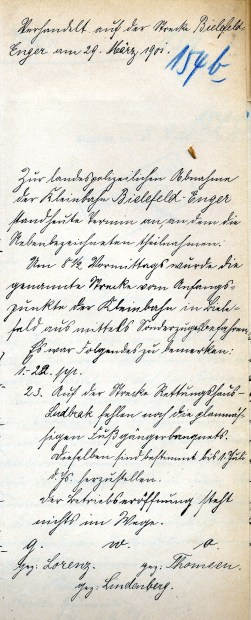 Verhandelt auf der Strecke Bielefeld-
Enger am 29. März 1901.
154b
Zur landespolizeilichen Abnahme
der Kleinbahn Bielefeld-Enger
stand heute Termin an, an dem die
Nebenbezeichneten theilnahmen:
Um 8½ Vormittags wurde die
genannte Strecke vom Anfangs-
punkte der Kleinbahn in Biele-
feld aus mittels Sonderzuges befahren.
Es war Folgendes zu bemerken:
1.-22. pp.
23. Auf der Strecke Rettungshaus-
fehlen noch die planmäs-
sigen Fußgängerbanquets.
Dieselben sind bestimmt bis 1. Juli
d. Js. herzustellen.
Der Betriebseröffnung steht
nichts im Wege.
g. w. o.
gez: Lorenz. gez: Thomsen.
gez: Lindenberg.